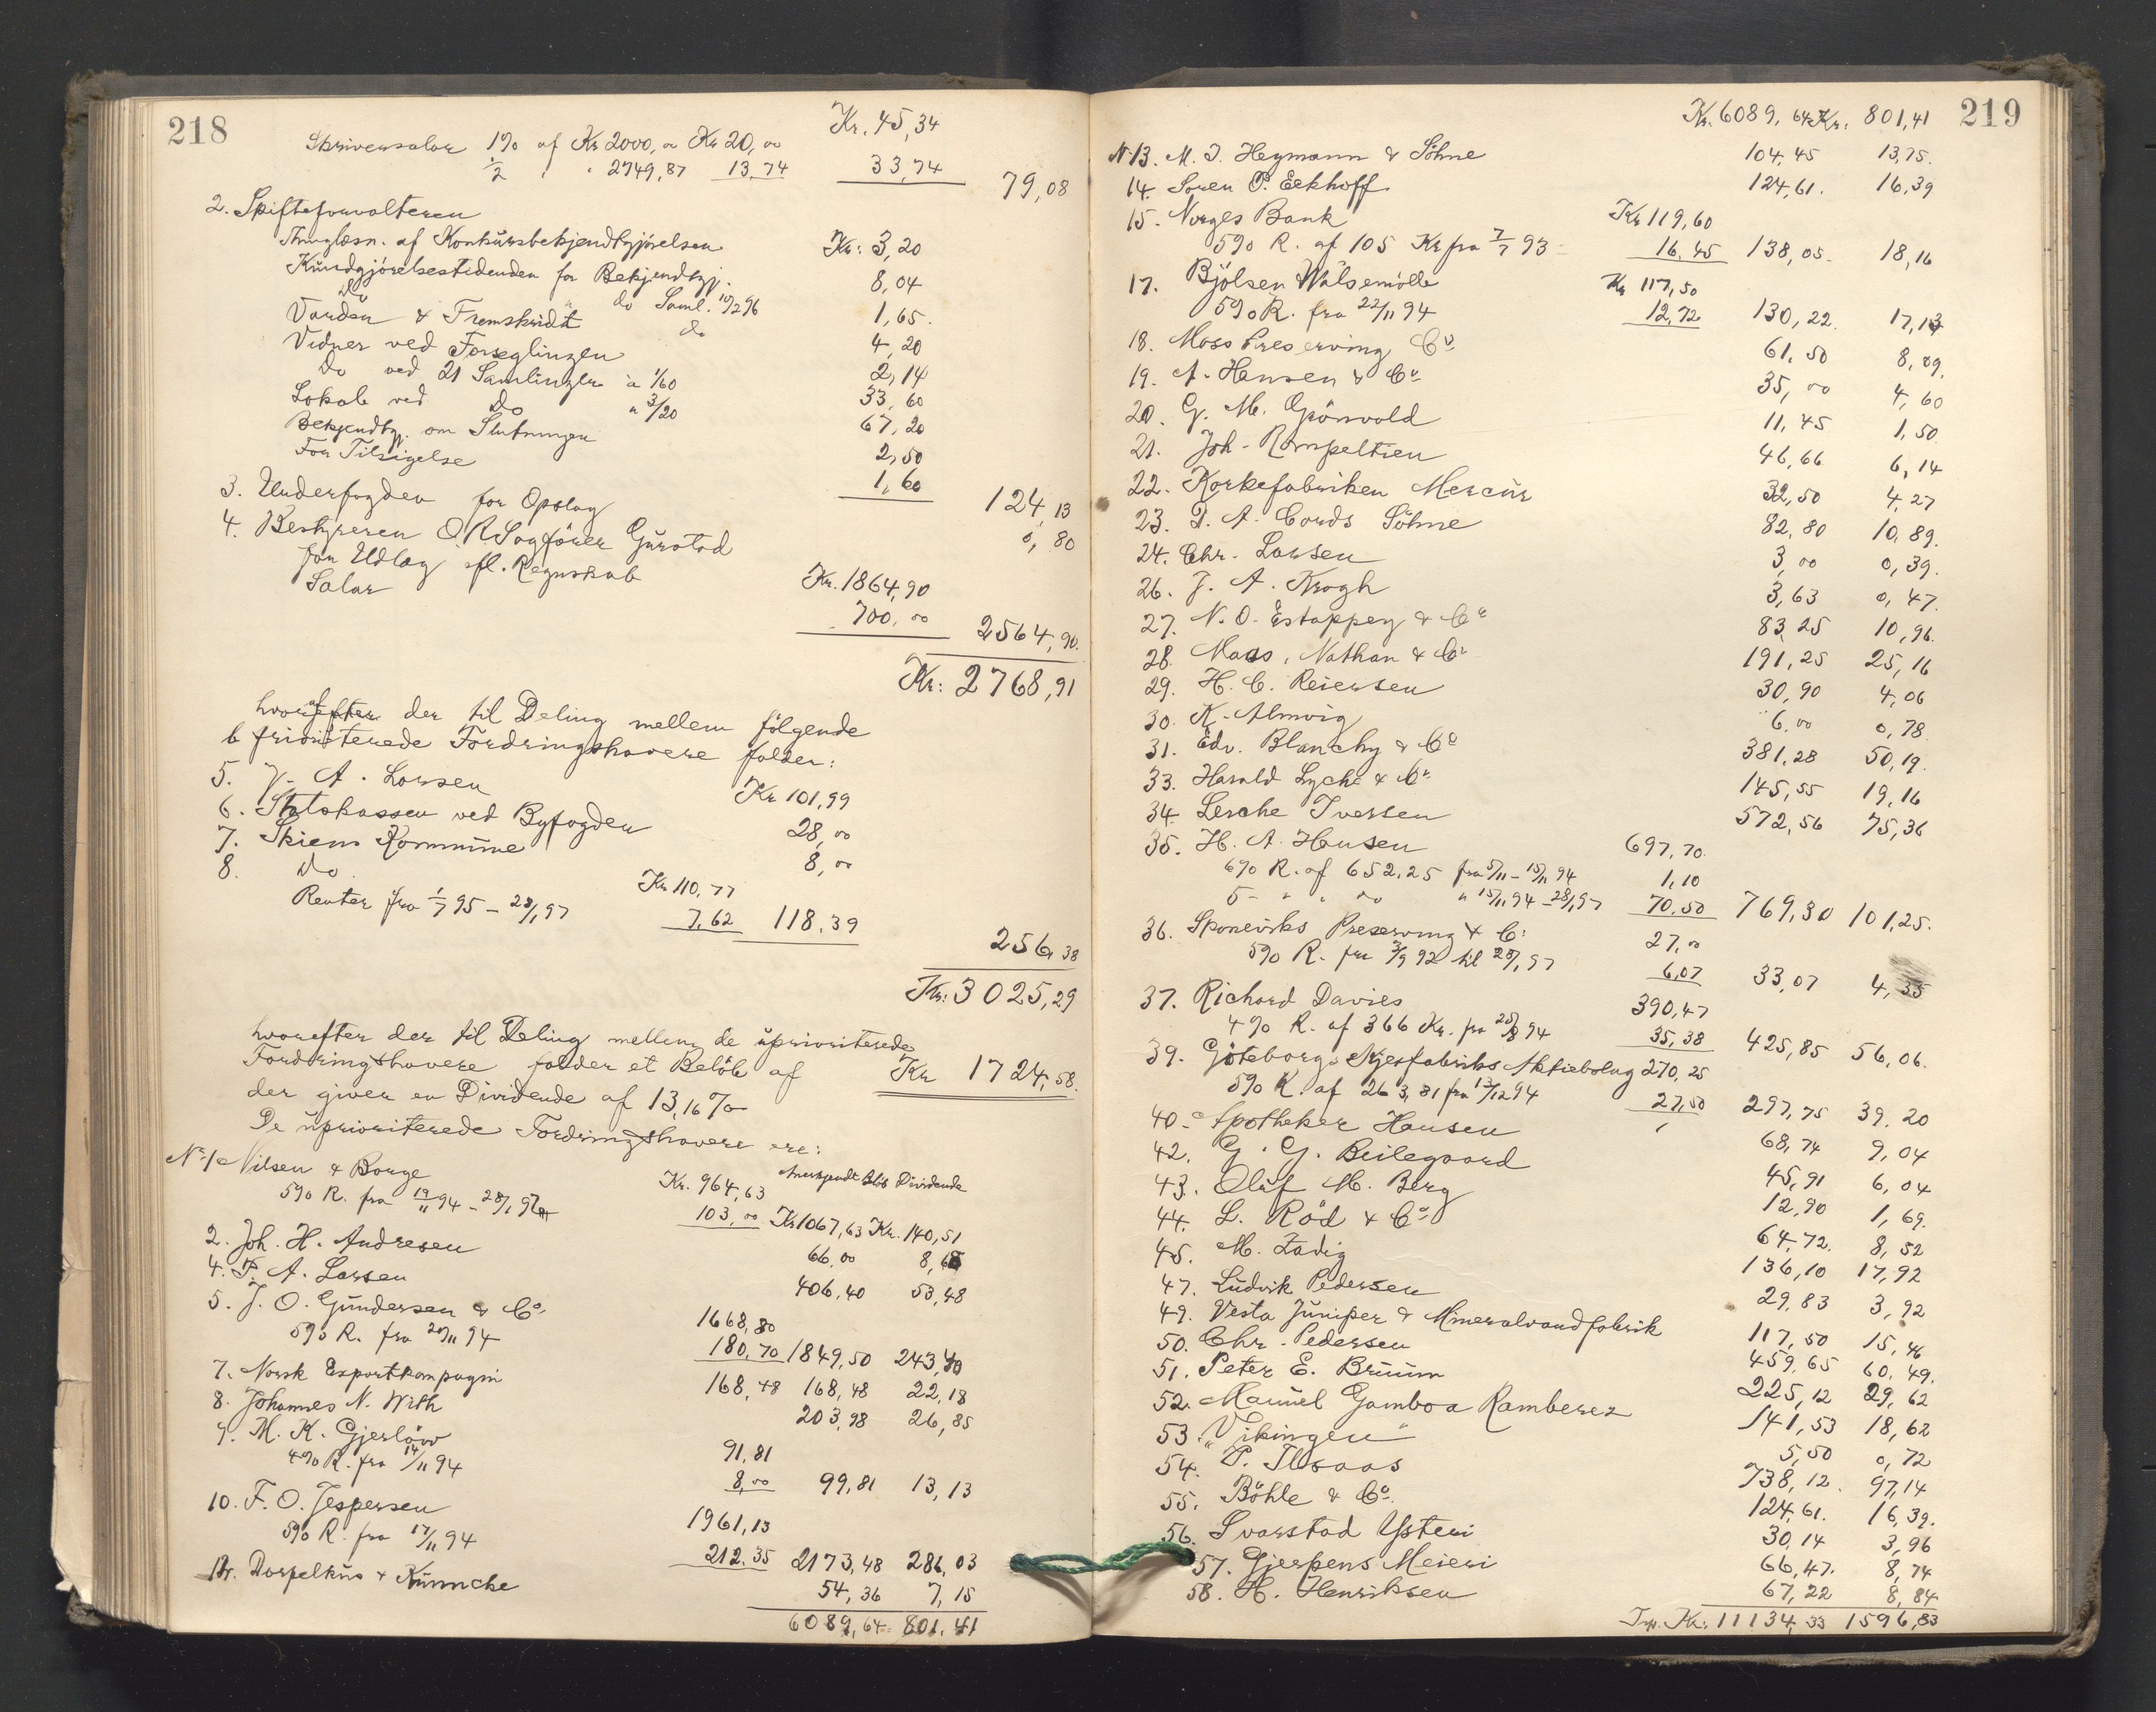 218
Kr. 45,34
Skriversalær 1% af Kr 2000,00 Kr 20,00
1/2 " " 2749,87 13,74 33,74 79,08
2. Skifteforvalteren
Thinglæsn. af Konkursbekjendtgjørelsen Kr: 3,20
Kundgjørelsestidenden for Bekjendtgj. 8,04
Do " do Saml. 10/2 96 1,65.
Varden & Fremskridt do 4,20
Vidner ved Forseglingen 2,14
Do ved 21 Samlinger à 1/60 33,60
Lokale ved Do " 3/20 67,20
Bekjendtgj. om Slutningen 2,50
For Tilsigelse 1,60 124,13
3. Underfogden for Opslag 0,80
4. Bestyreren O.R.Sagfører Gurstad
for Udlæg efl. Regnskab Kr. 1864,90
Salær 700,00 2564,90.
Kr: 2768,91
hvorefter der til Deling mellem følgende
6 prioriterede Fordringshavere falder:
5. J. A. Larsen Kr 101,99
6. Statskassen ved Byfogden 28,00
7. Skiens Kommune 8,00
8. Do. Kr 110,77
Renter fra 1/7 95 – 28/1 97 7,62 118,39 256,38
Kr: 3025,29
hvorefter der til Deling mellem de uprioriterede
Fordringshavere falder et Beløb af Kr 1724,58.
der giver en Dividende af 13,16 %
De uprioriterede Fordringshavere ere:
Anerkjendt Bløb Dividende
No 1. Nilsen & Borge Kr. 964,63
5% R. fra 19/11 94 – 28/1 97 103,00 Kr 1067,63 Kr. 140,51
2. Joh. H. Andresen 66,00 8,68
4. F. A. Larsen 406,40 53,48
5. J. O. Gundersen & Co. 1668,80
5% R. fra 20/11 94 180,70 1849,50 243,40
7. Norsk Exportkompagni 168,48 168,48 22,18
8. Johannes N. With 203,98 26,85
9. M. K. Gjerløw 91,81
4% R. fra 14/11 94 8,00 99,81 13,13
10. F. O. Jespersen 1961,13
5% R. fra 17/11 94 212,35 2173,48 286,03
12. Dorpelkus & Kunnche 54,36 7,15
6089,64 801,41
219
Kr. 6089,64 Kr. 801,41
No 13. M. J. Heymann & Söhne 104,45 13,75.
14. Søren P. Eckhoff 124,61. 16,39
15. Norges Bank Kr 119,60
5% R. af 105 Kr fra 7/7 93 16,45 138,05. 18,16
17. Bjølsen Valsemølle Kr 117,50
5% R. fra 22/11 94 12,72 130,22. 17,13
18. Moss Preserving Co 61,50 8,09.
19. A. Hansen & Co 35,00 4,60
20. G. M. Grönvold 11,45 1,50
21. Joh. Rompeltien 46,66 6,14
22. Korkefabriken Mercür 32,50 4,27
23. D. A. Cords Söhne 82,80 10,89.
24. Chr. Larsen 3,00 0,39.
26. J. A. Krogh 3,63 0,47.
27. N. O. Estappey & Co 83,25 10,96.
28. Maas, Nathan & Co 191,25 25,16
29. H. C. Reiersen 30,90 4,06
30. K. Almvig 6,00 0,78
31. Edv. Blanchy & Co 381,28 50,19.
33. Harald Lyche & Co 145,55 19,16
34. Lerche Iversen 572,56 75,36
35. H. A. Hansen 697,70.
6% R. af 652,25 fra 5/11 – 15/11 94 1,10
5 – " " " 15/11 94 – 28/1 97 70,50 769,30 101,25.
36. Sponviks Preserving & Co 27,00
5% R. fra 3/9 92 til 28/1 97 6,07 33,07 4,35
37. Richard Davies 390,47
4% R. af 366 Kr. fra 28/8 94 35,38 425,85 56,06.
39. Göteborgs Nyesfabriks Aktiebolag 270,25
5% R. af 263,81 fra 13/12 94 27,50 297,75 39,20
40. Apotheker Hansen 68,74 9,04
42. G. G. Beilegaard 45,91 6,04
43. Oluf M. Berg 12,90 1,69.
44. L. Röd & Co 64,72. 8,52
45. M. Zadig 136,10 17,92
47. Ludvik Pedersen 29,83 3,92
49. Vesta Juniper & Mineralvandfabrik 117,50 15,46
50. Chr. Pedersen 459,65 60,49.
51. Peter E. Bruun 225,12 29,62
52. Manuel Gamboa Ramberez 141,53 18,62
53. "Vikingen" 5,50 0,72
54. P. Ilsaas 738,12. 97,14
55. Böhle & Co. 124,61. 16,39.
56. Svarstad Ysteri 30,14 3,96
57. Gjerpens Meieri 66,47. 8,74
58. H. Henriksen 67,22 8,84
Trsp. Kr: 11134,33 1596,83